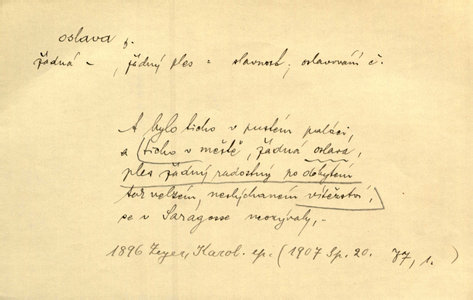 oslava f.
žádná –, žádný ples = slavnost; oslavování č.
A bylo ticho v pustém paláci,
a ticho v městě, žádná oslava,
ples žádný radostný po dobytém
tak velkém, neslýchaném vítězství,
se v Saragosse neozývaly, –
1896 Zeyer, Karol. ep. (1907 Sp. 20. 77, 1.)